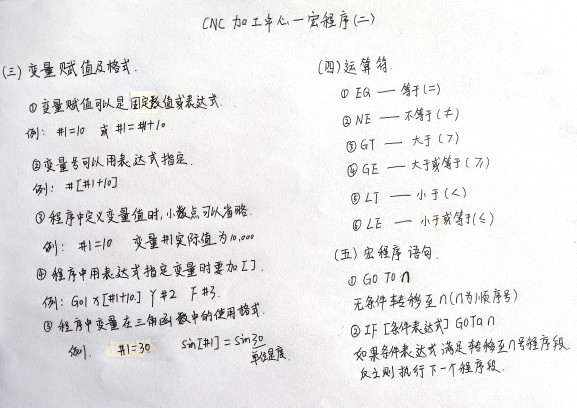 CNC 加工中心—宏程序(二)
(三) 变量赋值及格式.
① 变量赋值可以是固定数值或表达式.
例: #1=10 或 #1=#1+10
② 变量号可以用表达式指定.
例: #[#1+10]
③ 程序中定义变量值时,小数点可以省略.
例: #1=10 变量#1实际值为10.000
④ 程序中用表达式指定变量时要加[].
例: G01 X[#1+10.] Y#2 F#3.
⑤ 程序中变量在三角函数中的使用格式.
例. #1=30 sin[#1]=sin30
单位是度.
(四) 运算符.
① EQ — 等于(=)
② NE — 不等于(≠)
③ GT — 大于(>)
④ GE — 大于或等于(≥)
⑤ LT — 小于(<)
⑥ LE — 小于或等于(≤)
(五) 宏程序语句.
① GO TO n
无条件转移至n(n为顺序号)
② IF [条件表达式] GOTO n
如果条件表达式满足转移至n号程序段.
反之则执行下一个程序段.